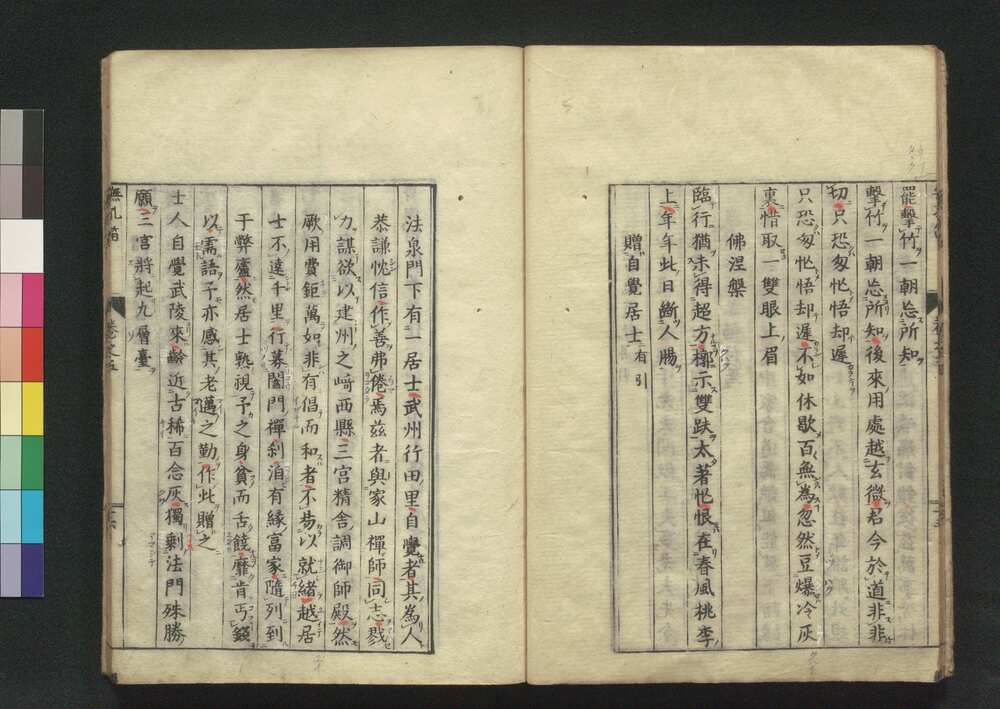 罷擊竹一朝忘所知
擊竹一朝忘所知後來用處越玄微君今於道非非
切只恐匆忙悟却遲
只恐匆忙悟却遲不如休歇百無為忽然豆爆冷灰
裏惜取一雙眼上眉
佛涅槃
臨行猶未得超方槨示雙趺太著忙恨在春風桃李
上年年此日斷人腸
贈自覺居士有引
法泉門下有一居士武州行田里自覺者其為人
恭謙忱信作善弗倦焉茲者與家山禪師同志戮
力謀欲以建州之﨑西縣三宮精舍調御師殿然
厥用費鉅萬如非有倡而和者不易以就緒越居
士不遠千里行募閤門禪刹洎有緣富家隨列到
于弊廬然居士熟視予之身貧而舌饒靡肯丐錢
以需語予亦感其老邁之勤作此贈之
士人自覺武陵來齡近古稀百念灰獨剩法門殊勝
願三宮將起九層臺
無孔笛
卷之五